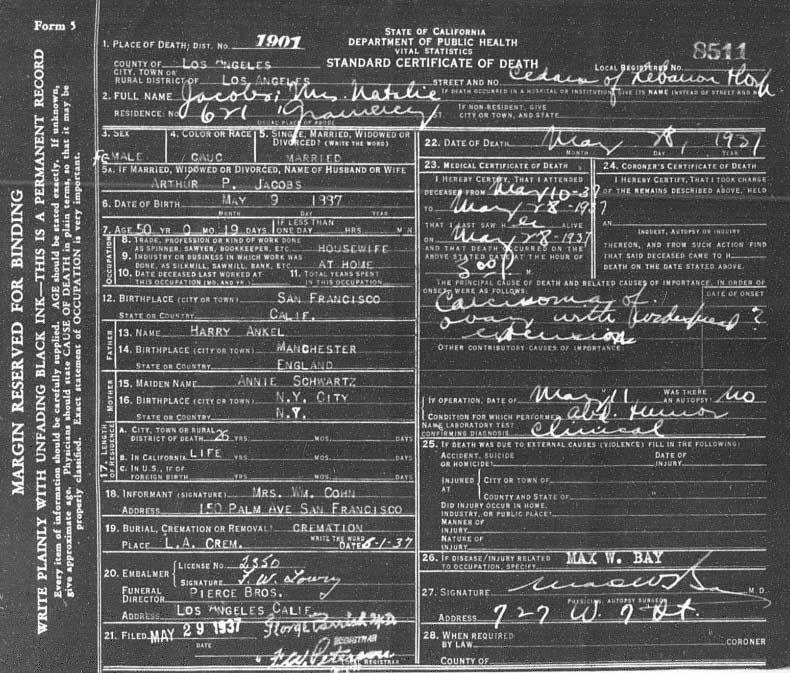 Form 5
MARGIN RESERVED FOR BINDING
WRITE PLAINLY WITH UNFADING BLACK INK—THIS IS A PERMANENT RECORD
Every item of information should be carefully supplied. AGE should be stated exactly. If unknown,
give approximate age. Physicians should state CAUSE OF DEATH in plain terms, so that it may be
properly classified. Exact statement of OCCUPATION is very important.
STATE OF CALIFORNIA
DEPARTMENT OF PUBLIC HEALTH
VITAL STATISTICS
STANDARD CERTIFICATE OF DEATH
1. PLACE OF DEATH; DIST. NO. 1901
LOCAL REGISTERED NO. 8511
COUNTY OF LOS ANGELES
CITY, TOWN OR
RURAL DISTRICT OF LOS ANGELES
STREET AND NO. Cedars of Lebanon Hosp
IF DEATH OCCURRED IN A HOSPITAL OR INSTITUTION, GIVE ITS NAME INSTEAD OF STREET AND NO.
2. FULL NAME Jacobs, Mrs. Natalie
RESIDENCE: NO. 621 Gramercy ST.
USUAL PLACE OF ABODE
IF NON-RESIDENT, GIVE
CITY OR TOWN, AND STATE
3. SEX
FEMALE
4. COLOR OR RACE
CAUC
5. SINGLE, MARRIED, WIDOWED OR
DIVORCED? (WRITE THE WORD)
MARRIED
5A. IF MARRIED, WIDOWED OR DIVORCED, NAME OF HUSBAND OR WIFE
ARTHUR P. JACOBS
6. DATE OF BIRTH MAY 9 1887
MONTH DAY YEAR
7. AGE 50 YR 0 MO 19 DAYS
IF LESS THAN
1 DAY HRS MIN
OCCUPATION
8. TRADE, PROFESSION OR KIND OF WORK DONE
AS SPINNER, SAWYER, BOOKKEEPER, ETC. HOUSEWIFE
9. INDUSTRY OR BUSINESS IN WHICH WORK WAS
DONE, AS SILKMILL, SAWMILL, BANK, ETC. AT HOME
10. DATE DECEASED LAST WORKED AT
THIS OCCUPATION (MO. AND YR.)
11. TOTAL YEARS SPENT
IN THIS OCCUPATION
12. BIRTHPLACE (CITY OR TOWN) SAN FRANCISCO
STATE OR COUNTRY CALIF.
FATHER
13. NAME HARRY ANKEL
14. BIRTHPLACE (CITY OR TOWN) MANCHESTER
STATE OR COUNTRY ENGLAND
MOTHER
15. MAIDEN NAME ANNIE SCHWARTZ
16. BIRTHPLACE (CITY OR TOWN) N.Y. CITY
STATE OR COUNTRY N.Y.
17. LENGTH OF RESIDENCE
A. CITY, TOWN OR RURAL
DISTRICT OF DEATH 26 YRS. MOS. DAYS
B. IN CALIFORNIA LIFE YRS. MOS. DAYS
C. IN U.S., IF OF
FOREIGN BIRTH YRS. MOS. DAYS
18. INFORMANT (SIGNATURE) MRS. WM. COHN
ADDRESS 150 PALM AVE SAN FRANCISCO
19. BURIAL, CREMATION OR REMOVAL? CREMATION
WRITE THE WORD
PLACE L.A. CREM. DATE 6-1-37
20. EMBALMER LICENSE NO. 2350
SIGNATURE F. W. Lowry
FUNERAL
DIRECTOR PIERCE BROS.
ADDRESS LOS ANGELES CALIF
21. FILED MAY 29 1937 George Parrish M.D.
DATE REGISTRAR
F.W. Peterson
LOCAL REGISTRAR
22. DATE OF DEATH May 28, 1937
MONTH DAY YEAR
23. MEDICAL CERTIFICATE OF DEATH
I HEREBY CERTIFY, THAT I ATTENDED
DECEASED FROM May 10-37
TO May 28-1937
THAT I LAST SAW H er ALIVE
ON May 28-1937
AND THAT DEATH OCCURRED ON THE
ABOVE STATED DATE AT THE HOUR OF
300 P M.
24. CORONER'S CERTIFICATE OF DEATH
I HEREBY CERTIFY, THAT I TOOK CHARGE
OF THE REMAINS DESCRIBED ABOVE, HELD
INQUEST, AUTOPSY OR INQUIRY
THEREON, AND FROM SUCH ACTION FIND
THAT SAID DECEASED CAME TO H
DEATH ON THE DATE STATED ABOVE.
THE PRINCIPAL CAUSE OF DEATH AND RELATED CAUSES OF IMPORTANCE, IN ORDER OF
ONSET, WERE AS FOLLOWS: DATE OF ONSET
Carcinoma of
ovary with widespread ?
extension
OTHER CONTRIBUTORY CAUSES OF IMPORTANCE:
IF OPERATION, DATE OF May 11 WAS THERE
AN AUTOPSY? No
CONDITION FOR WHICH PERFORMED abd. tumor
NAME LABORATORY TEST
CONFIRMING DIAGNOSIS Clinical
25. IF DEATH WAS DUE TO EXTERNAL CAUSES (VIOLENCE) FILL IN THE FOLLOWING:
ACCIDENT, SUICIDE
OR HOMICIDE?
DATE OF
INJURY
INJURED
AT
CITY OR TOWN OF
COUNTY AND STATE OF
DID INJURY OCCUR IN HOME,
INDUSTRY, OR PUBLIC PLACE?
MANNER OF
INJURY
NATURE OF
INJURY
26. IF DISEASE/INJURY RELATED
TO OCCUPATION, SPECIFY MAX W. BAY
27. SIGNATURE Max W Bay M.D.
PHYSICIAN, AUTOPSY SURGEON
ADDRESS 727 W. 7 St.
28. WHEN REQUIRED
BY LAW CORONER
COUNTY OF